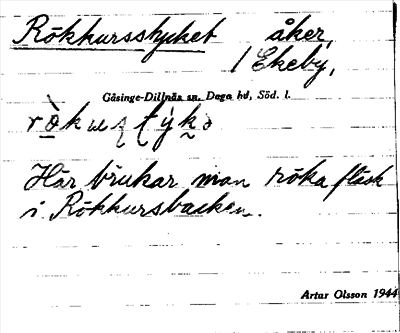 Rökkursstycket åker,
Ekeby,
Gåsinge-Dillnäs sn. Daga hd, Söd. l.
Här brukar man röka fläsk
i Rökkursbacken.
Artur Olsson 1944